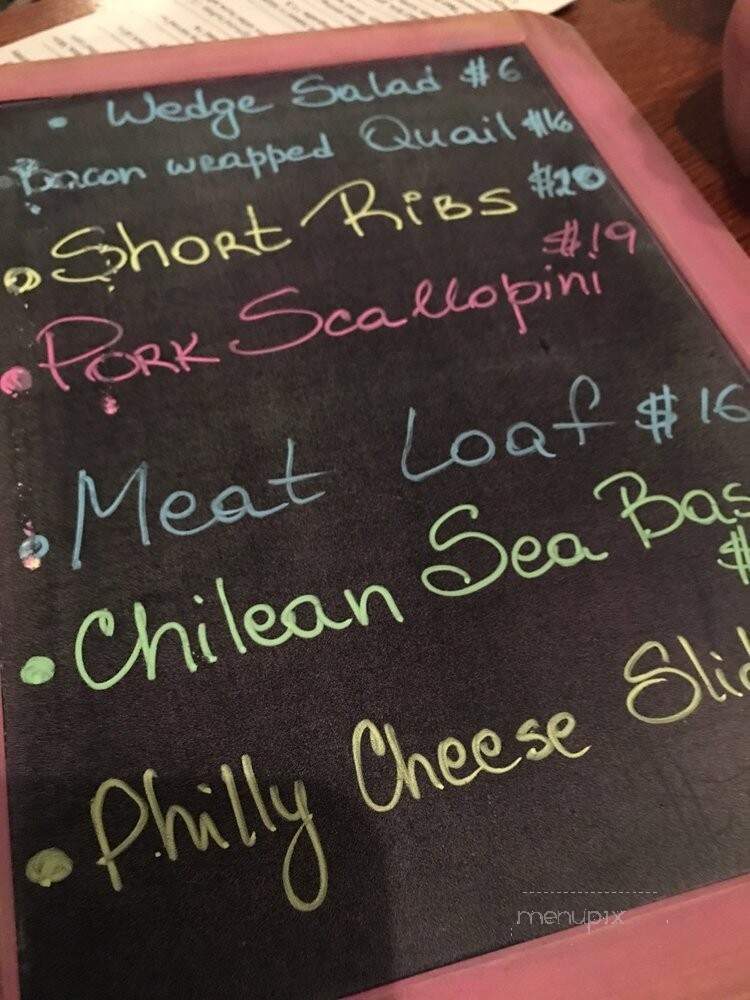 • Wedge Salad $6
Bacon wrapped Quail $16
• Short Ribs $20
$19
• Pork Scallopini
• Meat Loaf $16
• Chilean Sea Bas
$
• Philly Cheese Slid
menupix